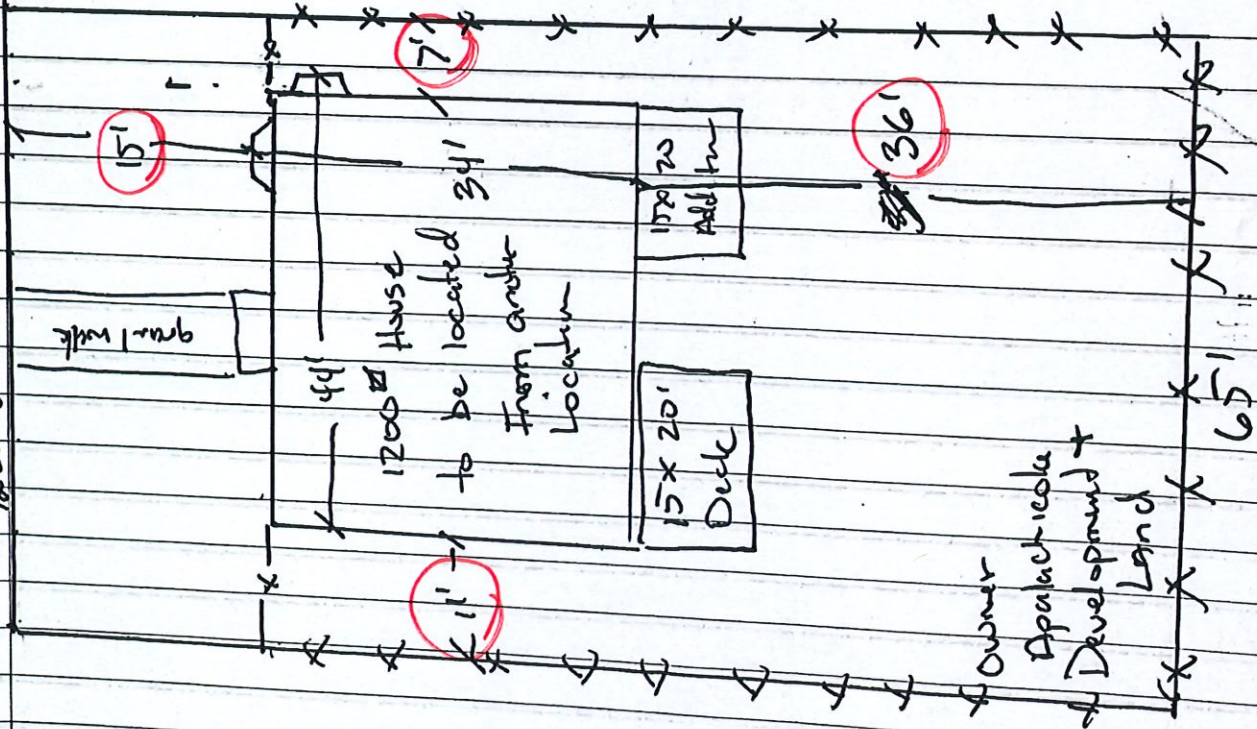 15'
7'
36'
34'
44'
11'
1200 House
to be located
From another
Location
15 x 20
Addtn
15 x 20'
Deck
Owner
Apalachicola
Development +
Land
65'